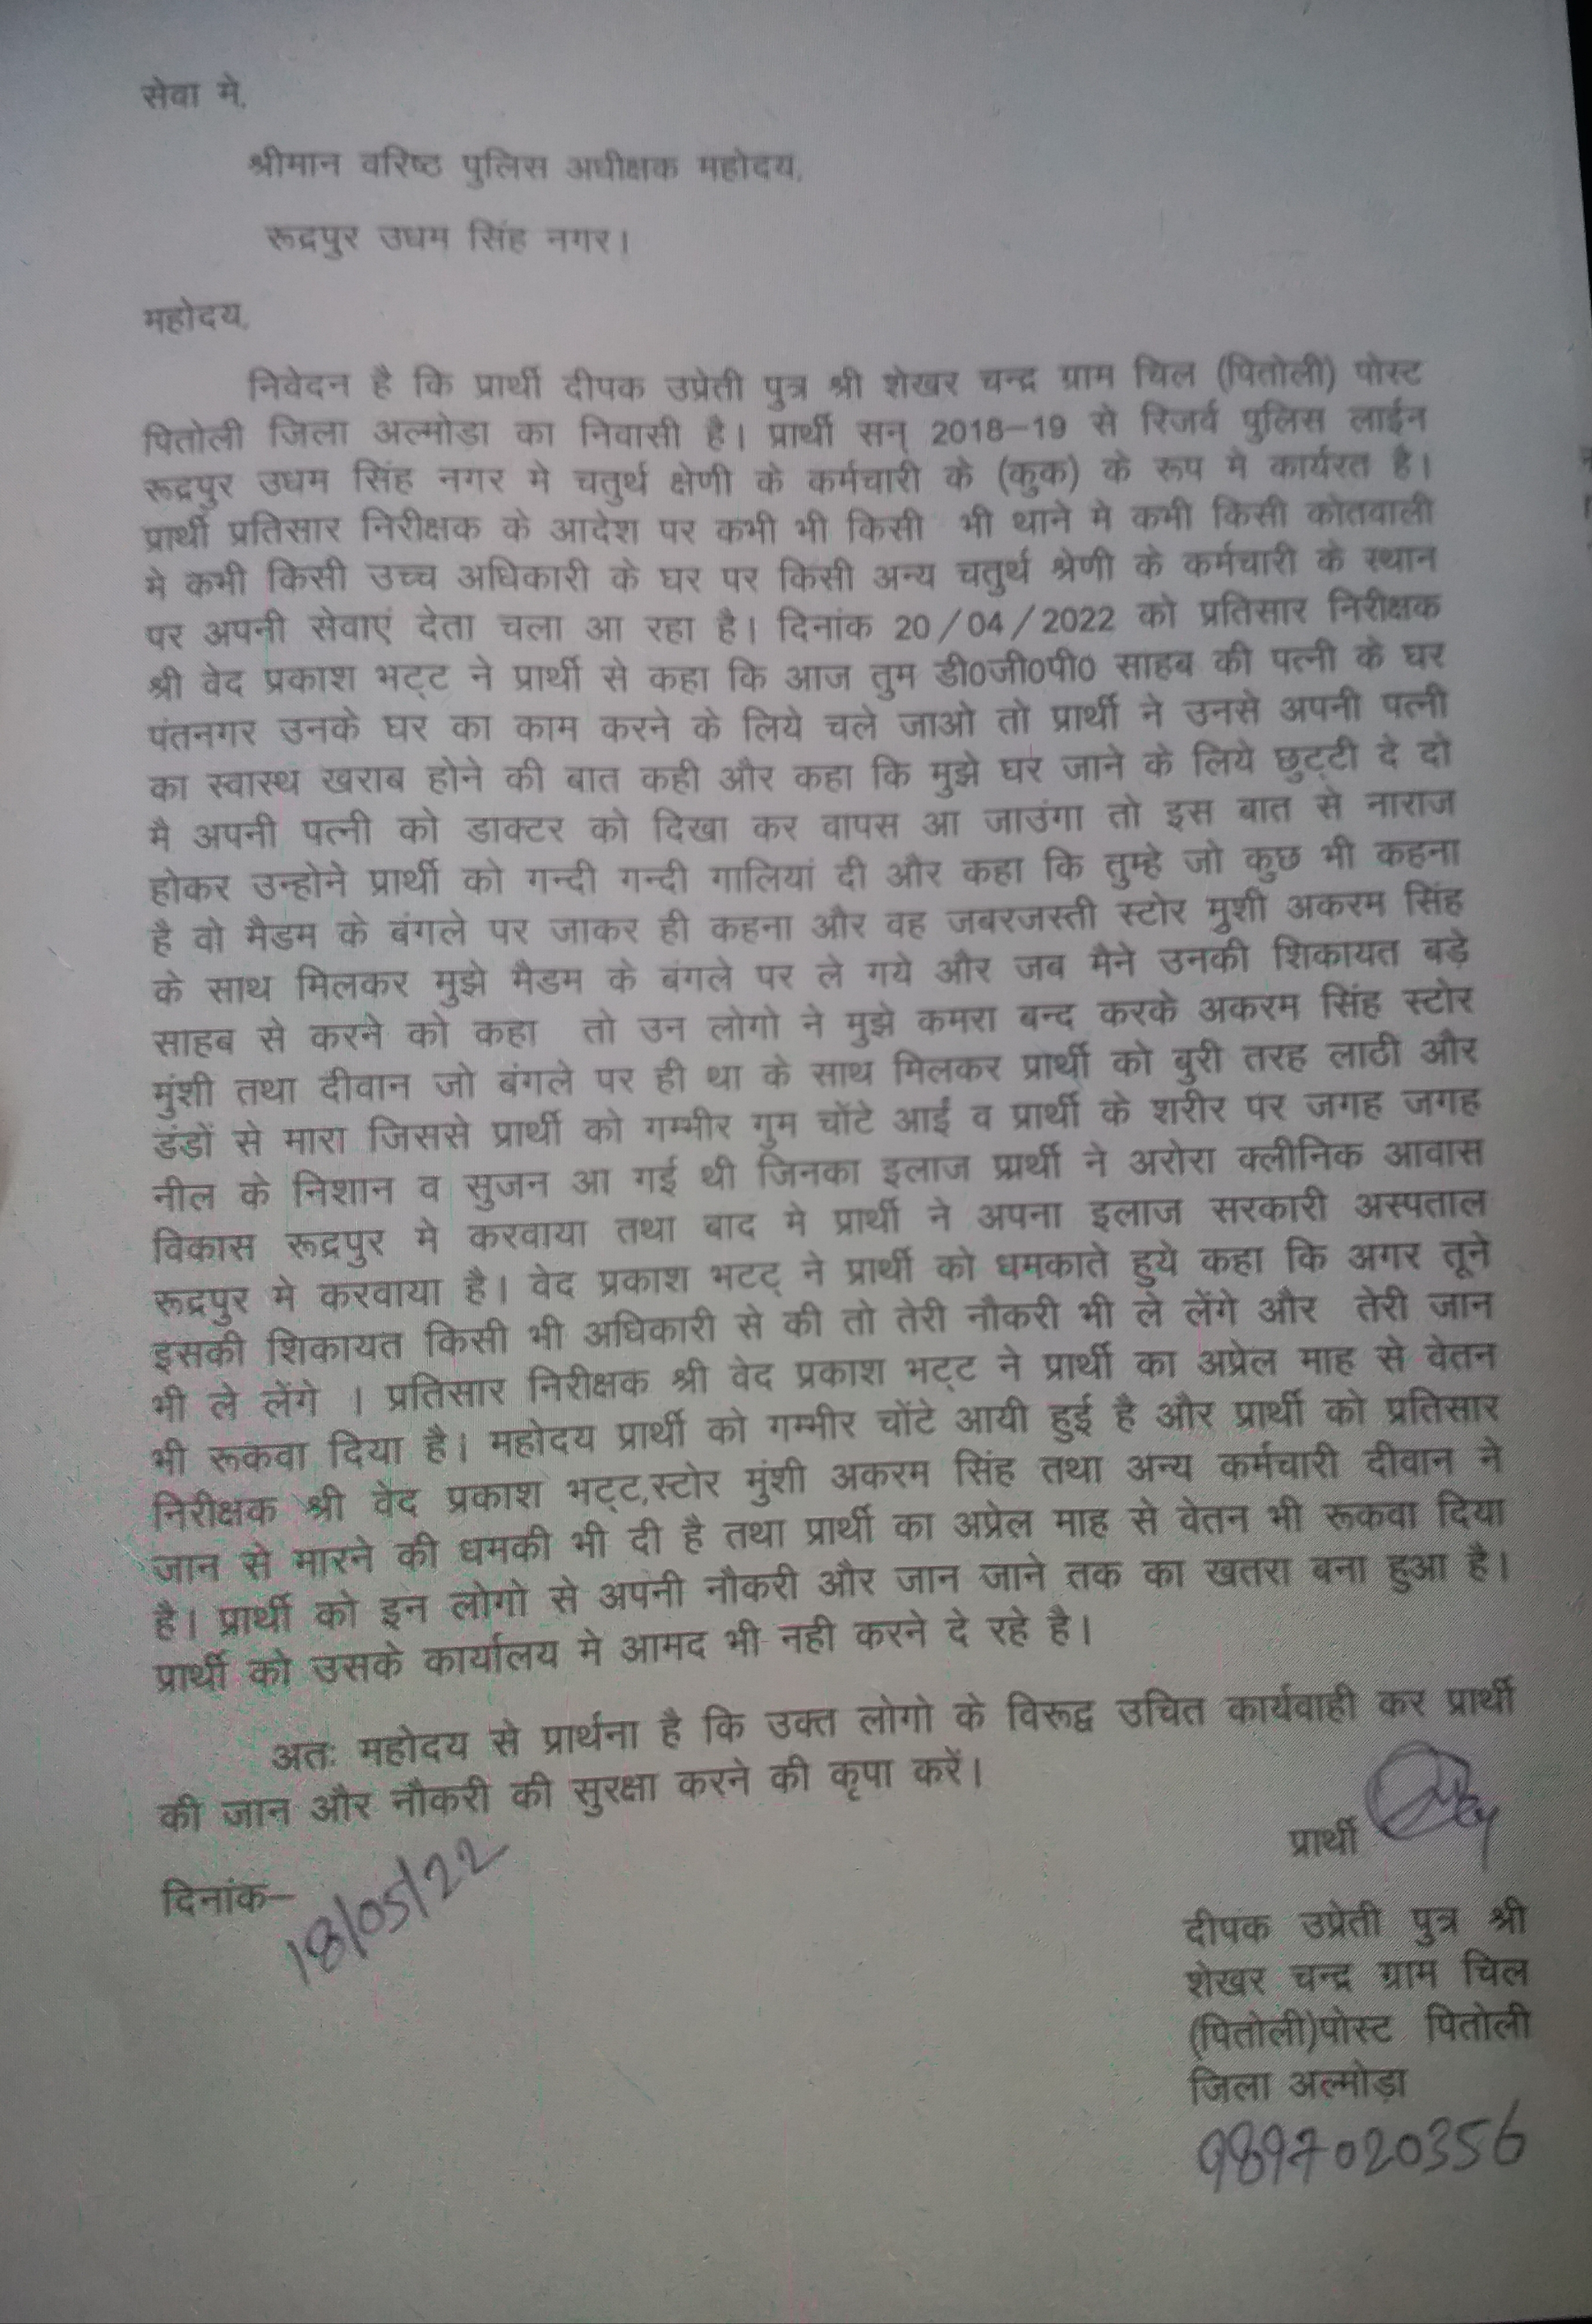 सेवा मे,
श्रीमान वरिष्ठ पुलिस अधीक्षक महोदय,
रूद्रपुर उधम सिंह नगर।
महोदय,
निवेदन है कि प्रार्थी दीपक उप्रेती पुत्र श्री शेखर चन्द्र ग्राम चिल (पितोली) पोस्ट
पितोली जिला अल्मोडा का निवासी है। प्रार्थी सन् 2018–19 से रिजर्व पुलिस लाईन
रूद्रपुर उधम सिंह नगर मे चतुर्थ क्षेणी के कर्मचारी के (कुक) के रूप मे कार्यरत है।
प्रार्थी प्रतिसार निरीक्षक के आदेश पर कभी भी किसी भी थाने मे कभी किसी कोतवाली
मे कभी किसी उच्च अधिकारी के घर पर किसी अन्य चतुर्थ श्रेणी के कर्मचारी के स्थान
पर अपनी सेवाएं देता चला आ रहा है। दिनांक 20/04/2022 को प्रतिसार निरीक्षक
श्री वेद प्रकाश भट्ट ने प्रार्थी से कहा कि आज तुम डी0जी0पी0 साहब की पत्नी के घर
पंतनगर उनके घर का काम करने के लिये चले जाओ तो प्रार्थी ने उनसे अपनी पत्नी
का स्वास्थ खराब होने की बात कही और कहा कि मुझे घर जाने के लिये छुट्टी दे दो
मै अपनी पत्नी को डाक्टर को दिखा कर वापस आ जाउंगा तो इस बात से नाराज
होकर उन्होने प्रार्थी को गन्दी गन्दी गालियां दी और कहा कि तुम्हे जो कुछ भी कहना
है वो मैडम के बंगले पर जाकर ही कहना और वह जबरजस्ती स्टोर मुशी अकरम सिंह
के साथ मिलकर मुझे मैडम के बंगले पर ले गये और जब मैने उनकी शिकायत बड़े
साहब से करने को कहा तो उन लोगो ने मुझे कमरा बन्द करके अकरम सिंह स्टोर
मुंशी तथा दीवान जो बंगले पर ही था के साथ मिलकर प्रार्थी को बुरी तरह लाठी और
डंडों से मारा जिससे प्रार्थी को गम्भीर गुम चोंटे आईं व प्रार्थी के शरीर पर जगह जगह
नील के निशान व सुजन आ गई थी जिनका इलाज प्रार्थी ने अरोरा क्लीनिक आवास
विकास रूद्रपुर मे करवाया तथा बाद मे प्रार्थी ने अपना इलाज सरकारी अस्पताल
रूद्रपुर मे करवाया है। वेद प्रकाश भटट् ने प्रार्थी को धमकाते हुये कहा कि अगर तूने
इसकी शिकायत किसी भी अधिकारी से की तो तेरी नौकरी भी ले लेंगे और तेरी जान
भी ले लेंगे । प्रतिसार निरीक्षक श्री वेद प्रकाश भट्ट ने प्रार्थी का अप्रेल माह से वेतन
भी रूकवा दिया है। महोदय प्रार्थी को गम्भीर चोंटे आयी हुई है और प्रार्थी को प्रतिसार
निरीक्षक श्री वेद प्रकाश भट्ट,स्टोर मुंशी अकरम सिंह तथा अन्य कर्मचारी दीवान ने
जान से मारने की धमकी भी दी है तथा प्रार्थी का अप्रेल माह से वेतन भी रूकवा दिया
है। प्रार्थी को इन लोगो से अपनी नौकरी और जान जाने तक का खतरा बना हुआ है।
प्रार्थी को उसके कार्यालय मे आमद भी नही करने दे रहे है।
अतः महोदय से प्रार्थना है कि उक्त लोगो के विरूद्व उचित कार्यवाही कर प्रार्थी
की जान और नौकरी की सुरक्षा करने की कृपा करें।
प्रार्थी
दिनांक– 18/05/22
दीपक उप्रेती पुत्र श्री
शेखर चन्द्र ग्राम चिल
(पितोली)पोस्ट पितोली
जिला अल्मोड़ा
9897020356